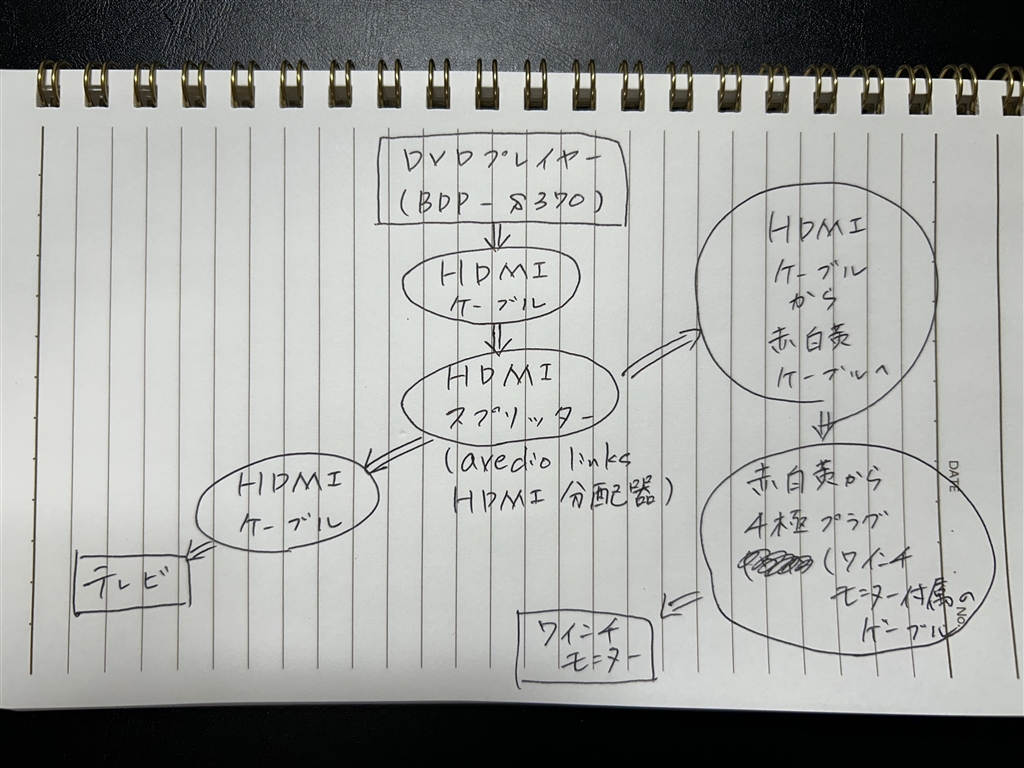 DVDプレイヤー
(BDP-S370)
HDMI
ケーブル
HDMI
スプリッター
(avedio links
HDMI 分配器)
HDMI
ケーブル
テレビ
HDMI
ケーブル
から
赤白黄
ケーブルへ
赤白黄から
4極プラグ
(7インチ
モニター付属の
ケーブル
7インチ
モニター
DATE
NO.